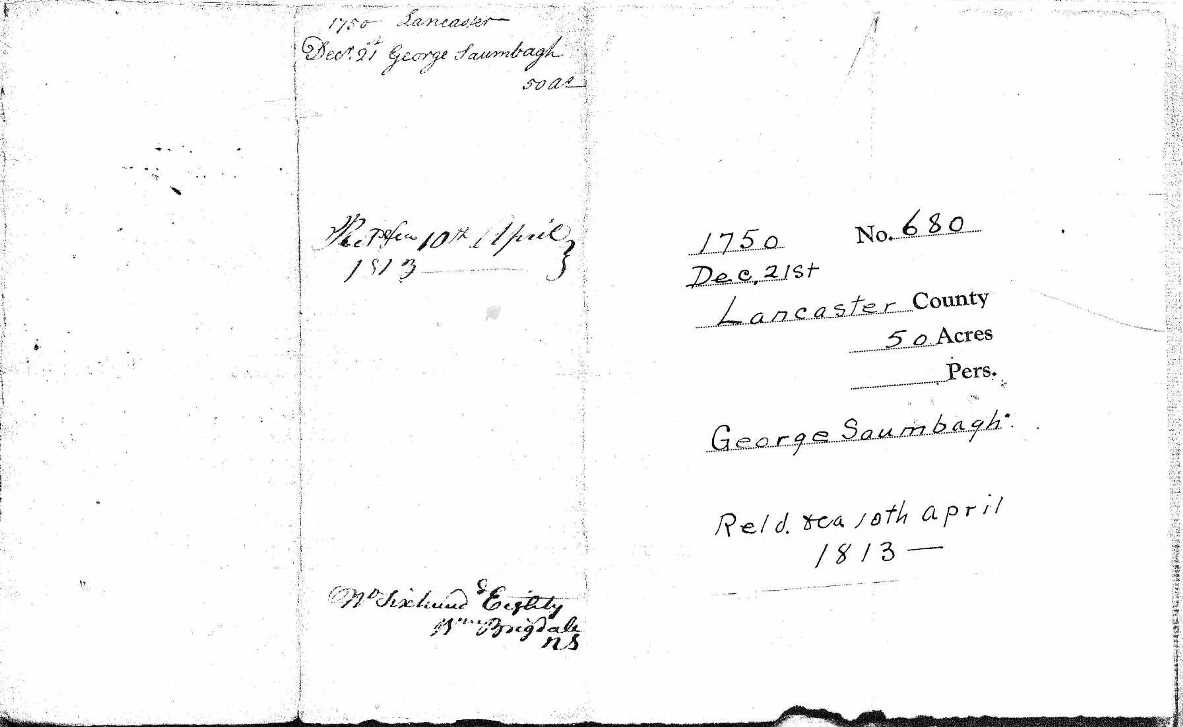 1750 Lancaster
Decr. 21st George Saumbagh
50 as
10th April
1813
No Sixhund & Eighty
Brigdale
NS
1750 No. 680
Dec, 21st
Lancaster County
50 Acres
Pers.
George Saumbagh.
Reld. &ca 10th april
1813 —